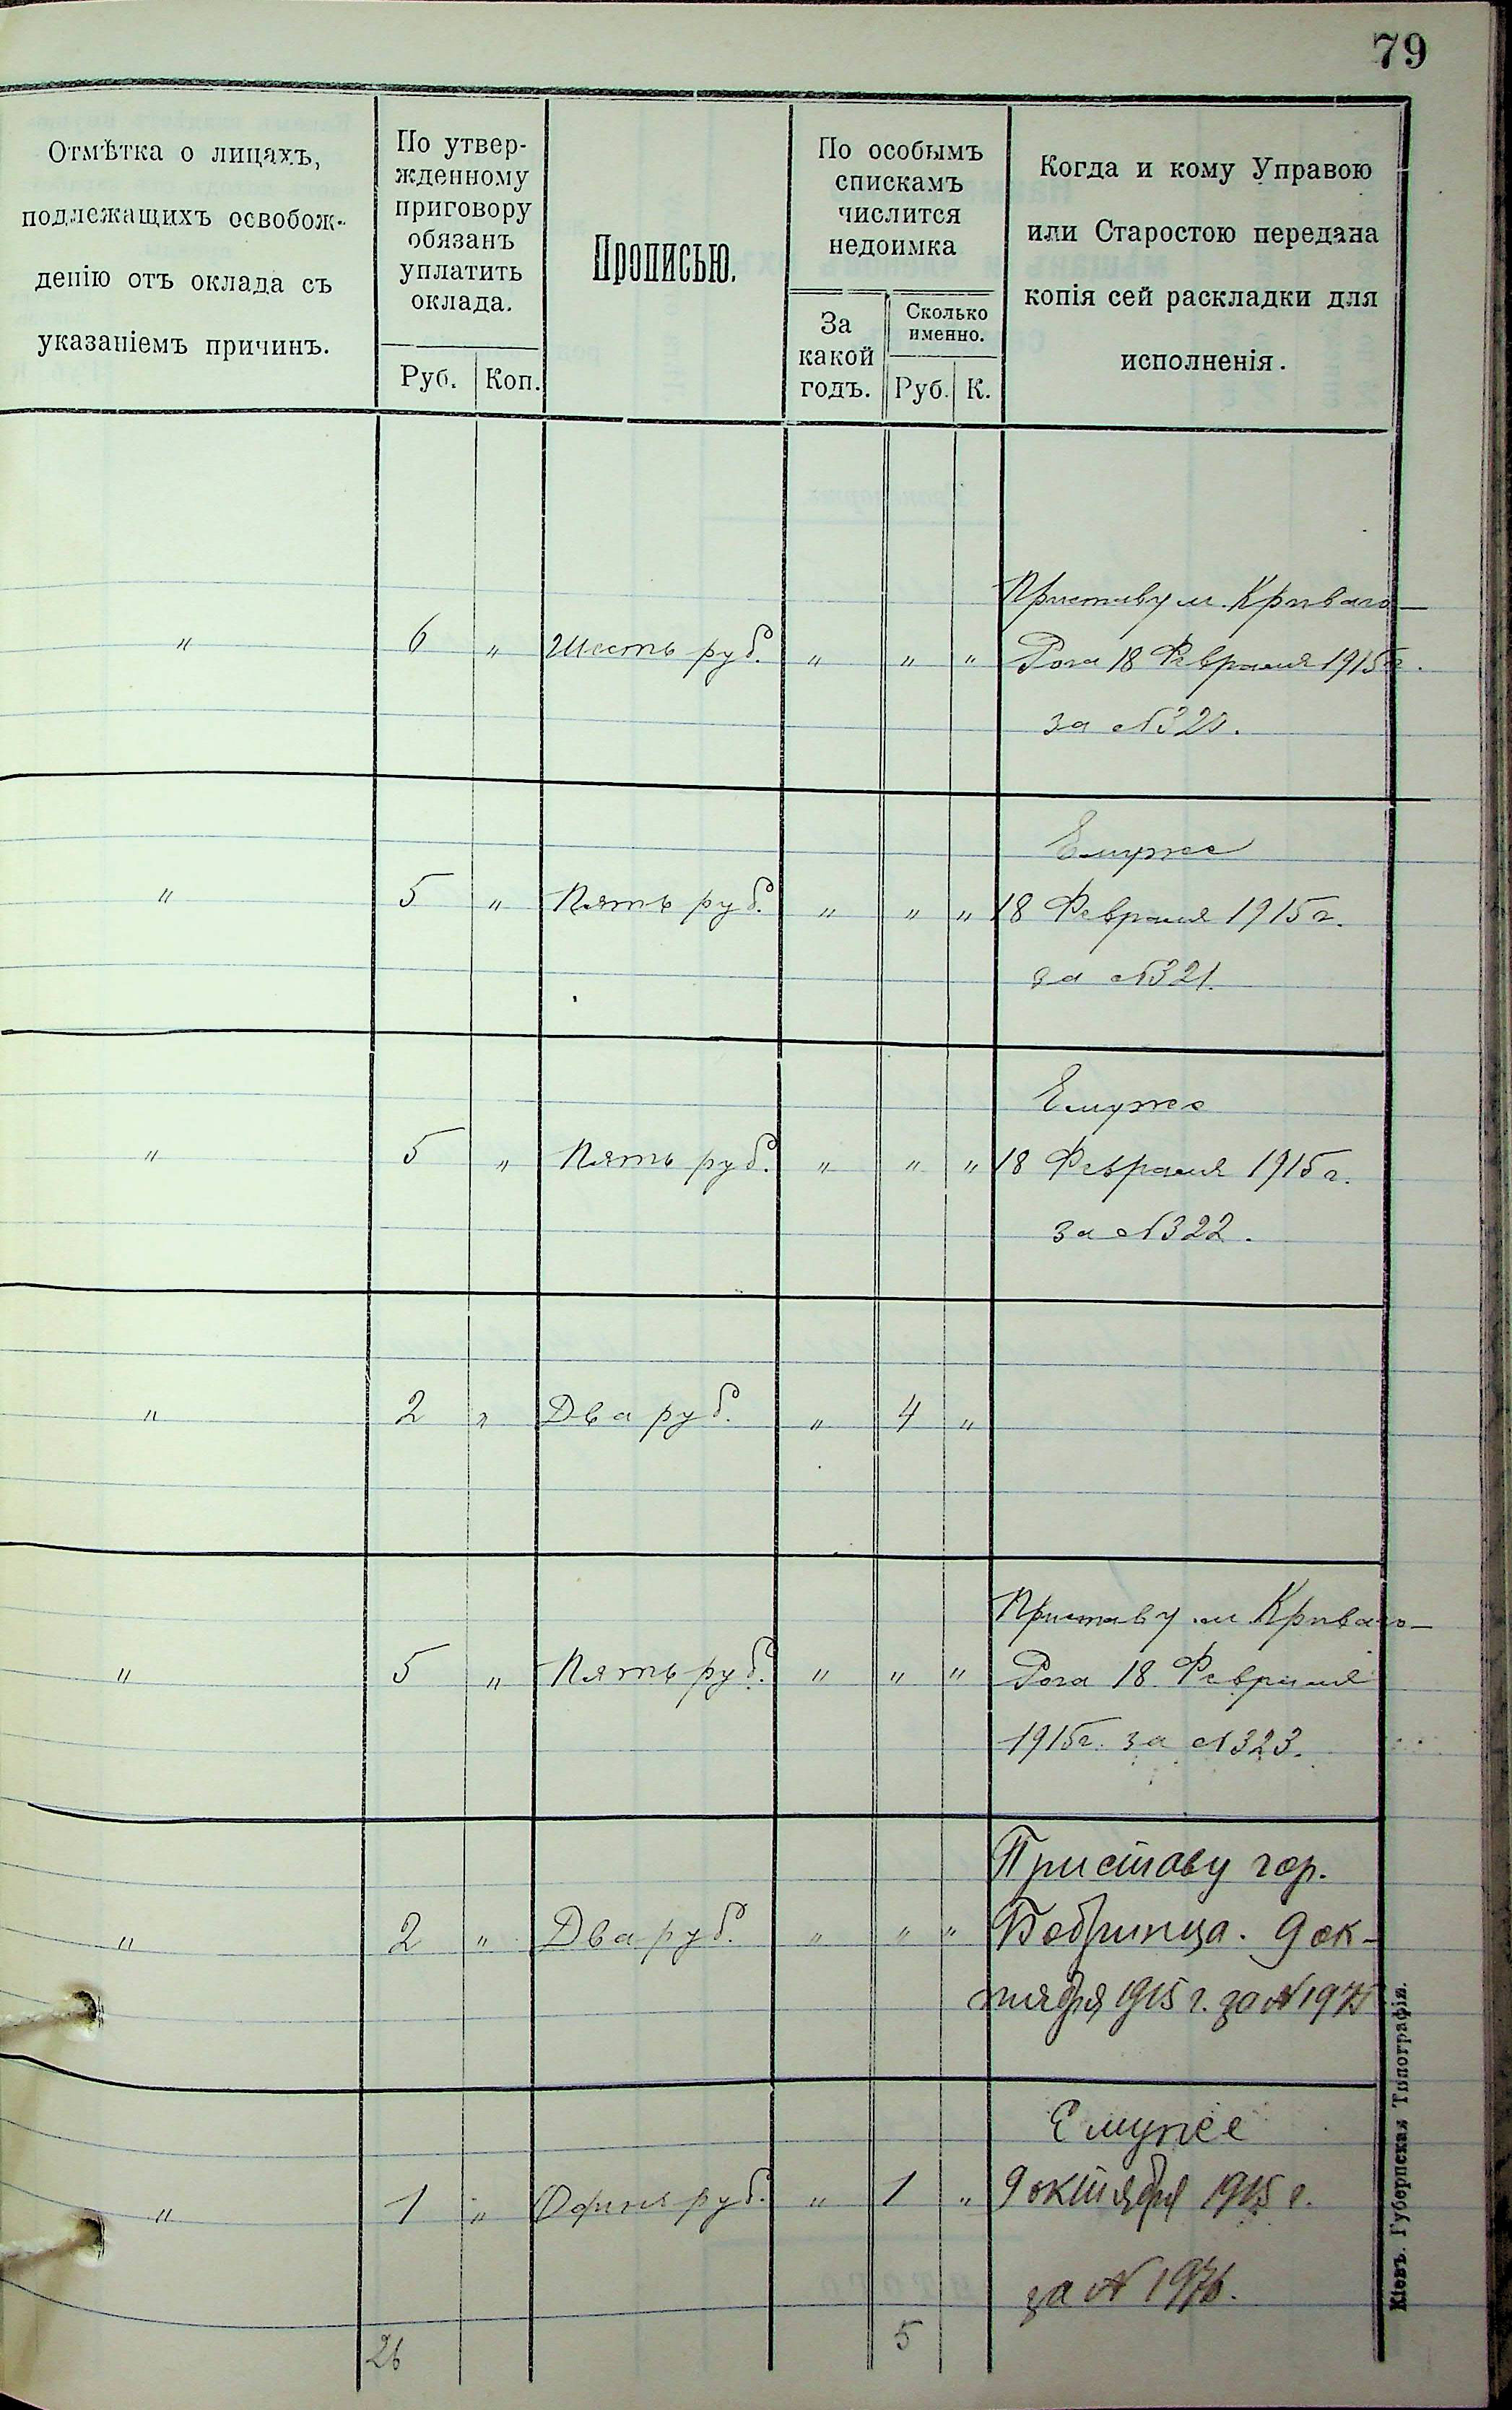 79
Отмѣтка о лицахъ,
подлежащихъ освобож-
денію отъ оклада съ
указаніемъ причинъ.
По утвер-
жденному
приговору
обязанъ
уплатить
оклада.
Руб. Коп.
Прописью.
По особымъ
спискамъ
числится
недоимка
За
какой
годъ.
Сколько
именно.
Руб. К.
Когда и кому Управою
или Старостою передана
копія сей раскладки для
исполненія.
Приставу м. Криваго-
" 6 " Шесть руб. " " " Рога 18 Февраля 1915 г.
за № 320.
Ему же
" 5 " Пять руб. " " " 18 Февраля 1915 г.
за № 321.
Ему же
" 5 " Пять руб. " " " 18 Февраля 1915 г.
за № 322.
" 2 " Два руб. " 4 "
Приставу м. Криваго-
" 5 " Пять руб. " " " Рога 18 Февраля
1915 г. за № 323.
Приставу гор.
" 2 " Два руб. " " " Бобринца. 9 ок-
тября 1915 г. за № 1975
Ему же
" 1 " Одинъ руб. " 1 " 9 октября 1915 г.
за № 1976.
26 5
Кіевъ. Губернская Типографія.